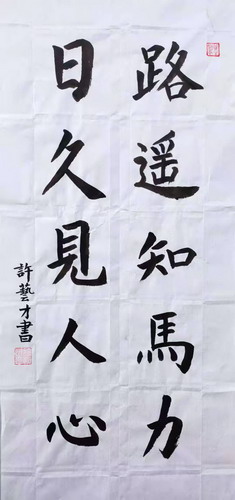 路遥知馬力
日久見人心
許藝才書